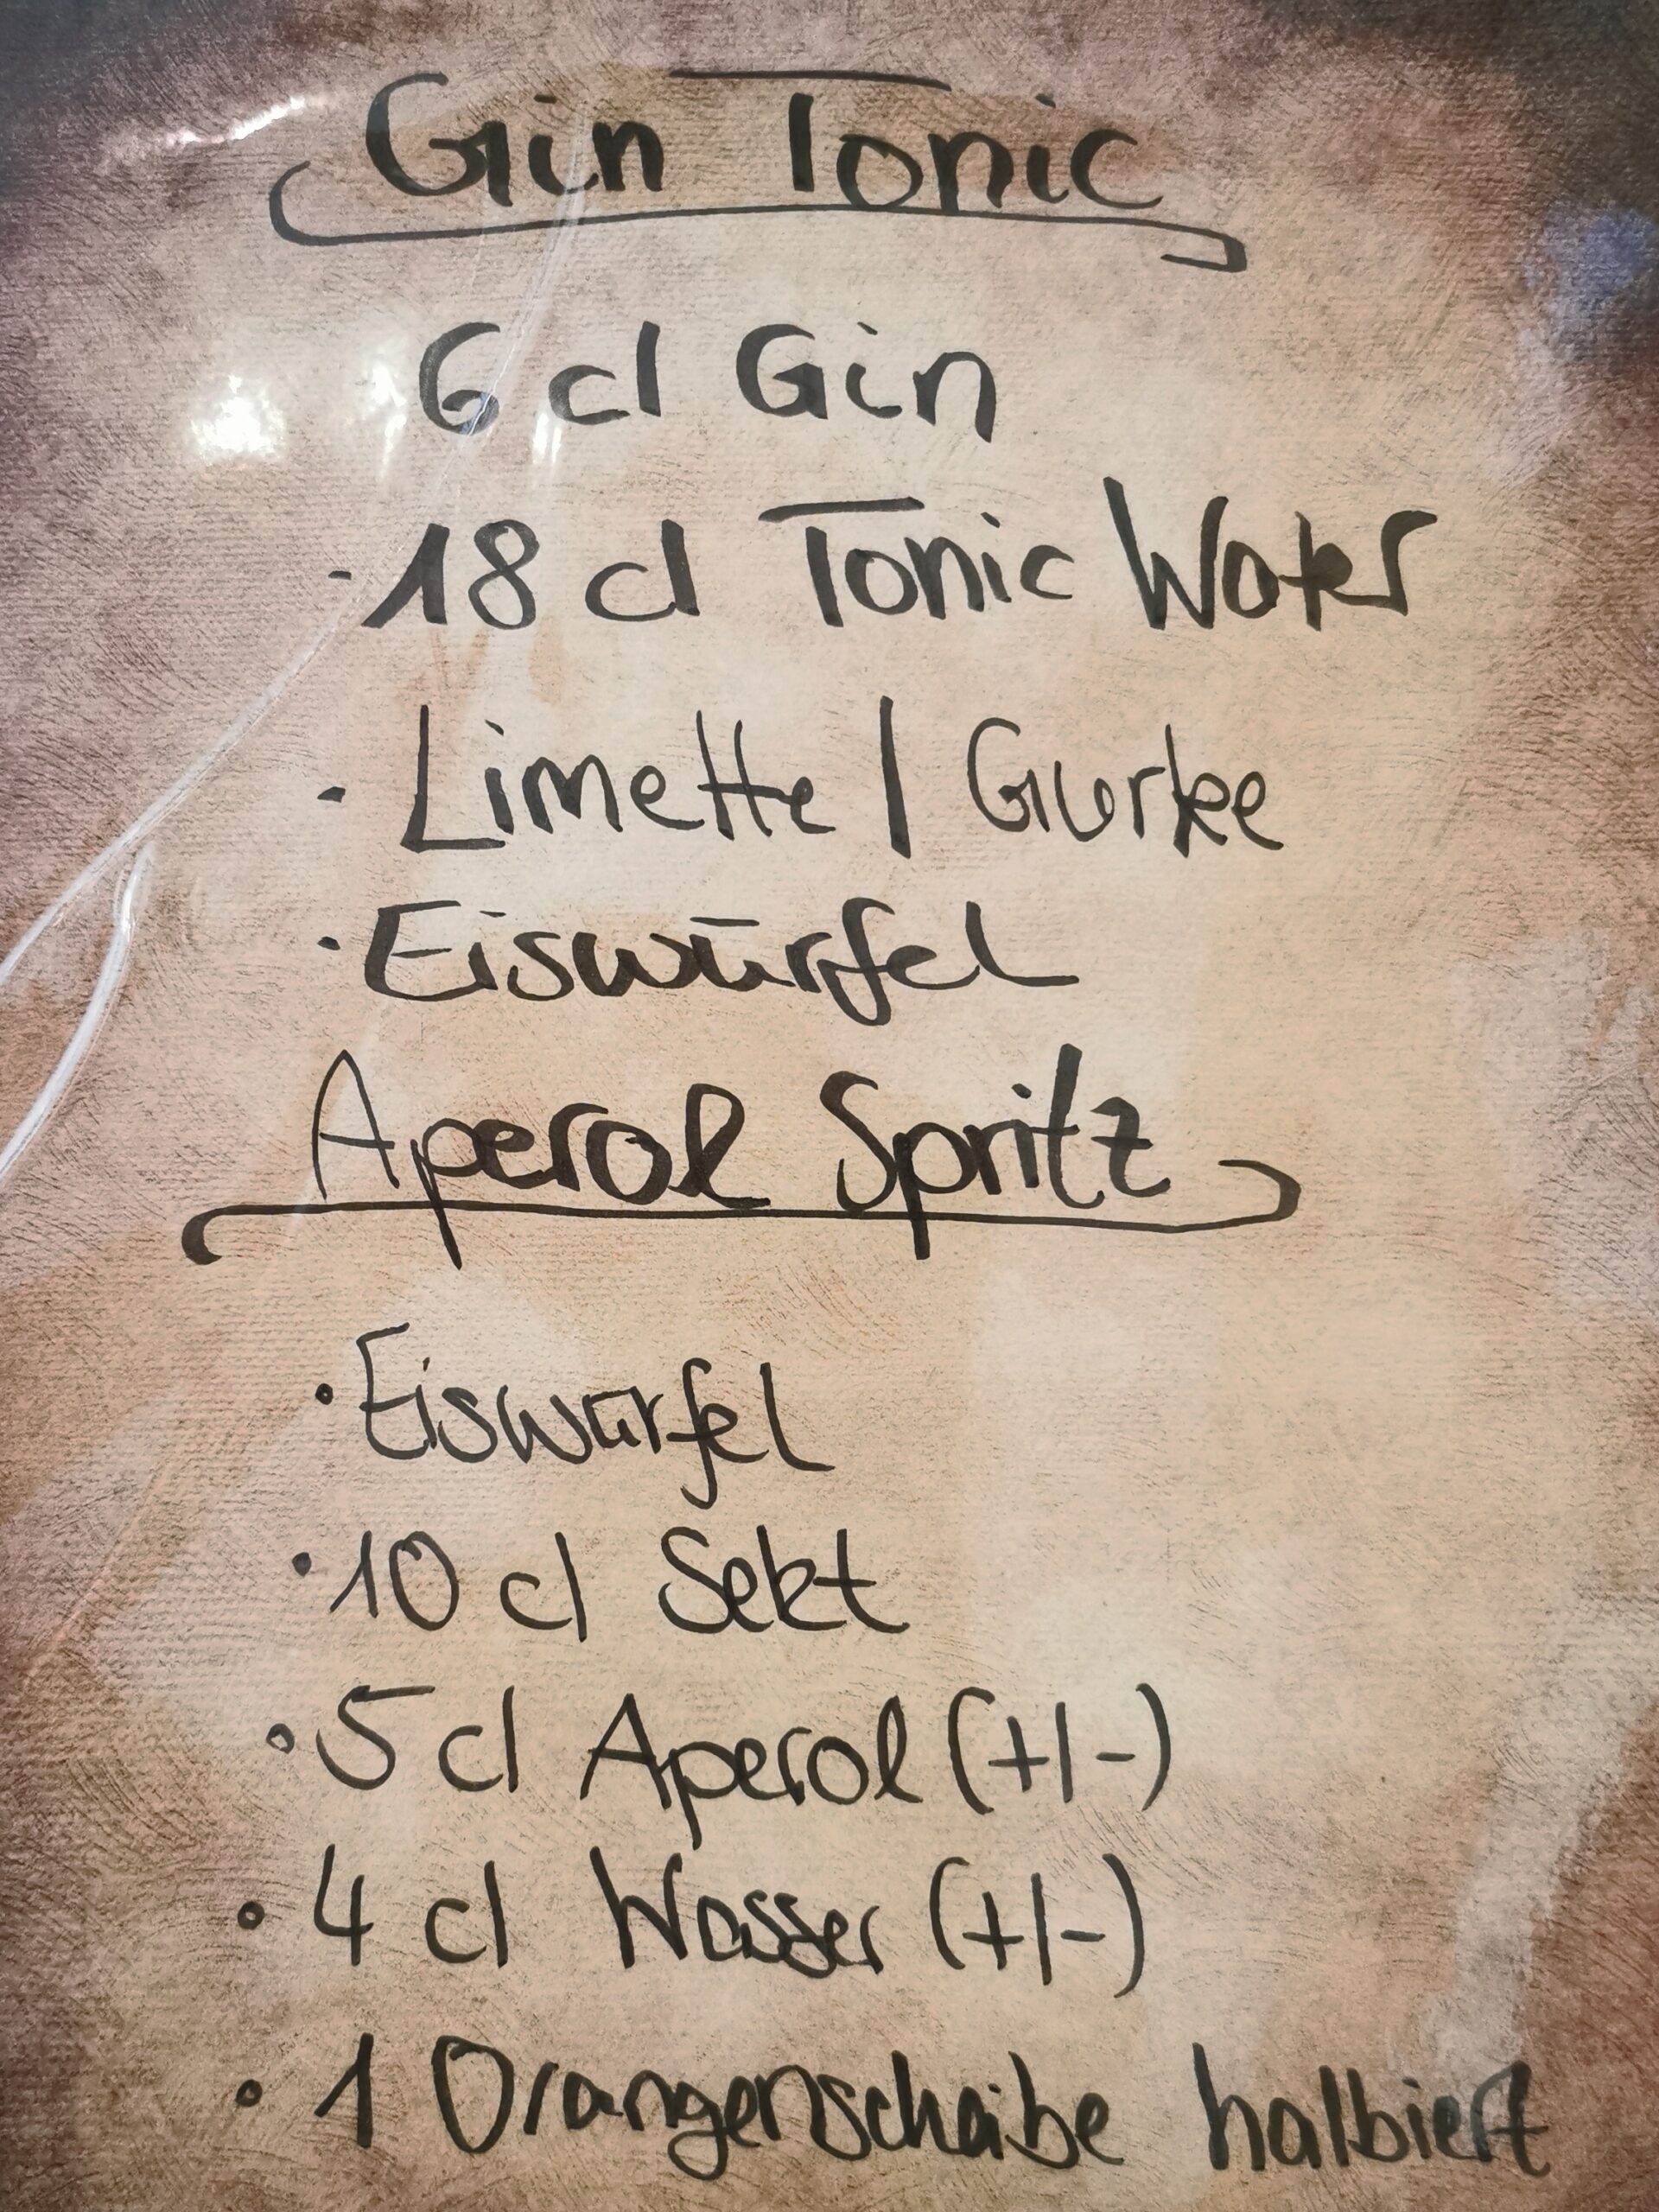 Gin Tonic
6 cl Gin
- 18 cl Tonic Water
- Limette / Gurke
· Eiswürfel
Aperol Spritz
· Eiswürfel
· 10 cl Sekt
· 5 cl Aperol (+/-)
· 4 cl Wasser (+/-)
· 1 Orangenscheibe halbiert